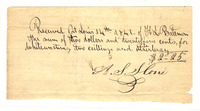 Received St Louis 14th 1841 of H. L. Patterson
the sum of two dollars and twenty five cents, for
whitewashing two ceilings and
$2.25
A. S. Stone